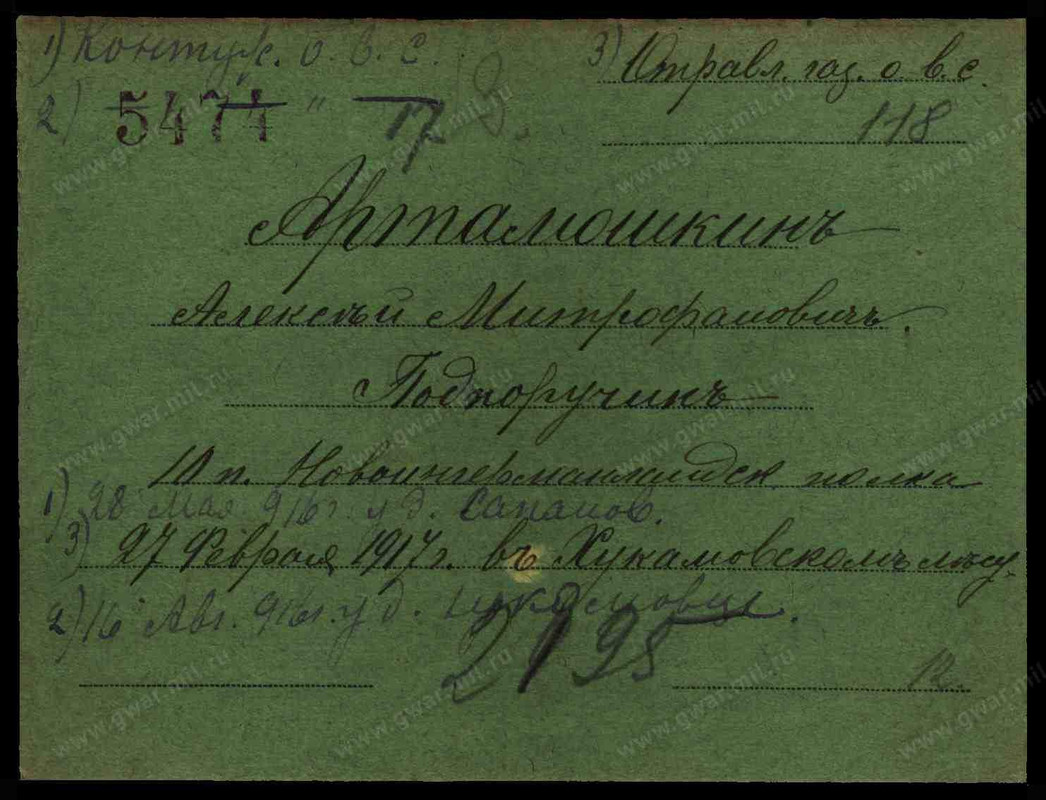 1) Контуж. о. в. с
3) Отравл. газ. о. в. с.
2) 5474 " 17
118
Артамошкинъ
Алексѣй Митрофановичъ.
Подпоручикъ
10 п. Новоингерманландск. полка
1) 28 Мая 916 г. у д. Сапанов.
3) 27 Февраля 1917 г. въ Хукаловскомъ лѣсу.
2) 16 Авг. 916 г. у д.
2195
12.
www.gwar.mil.ru